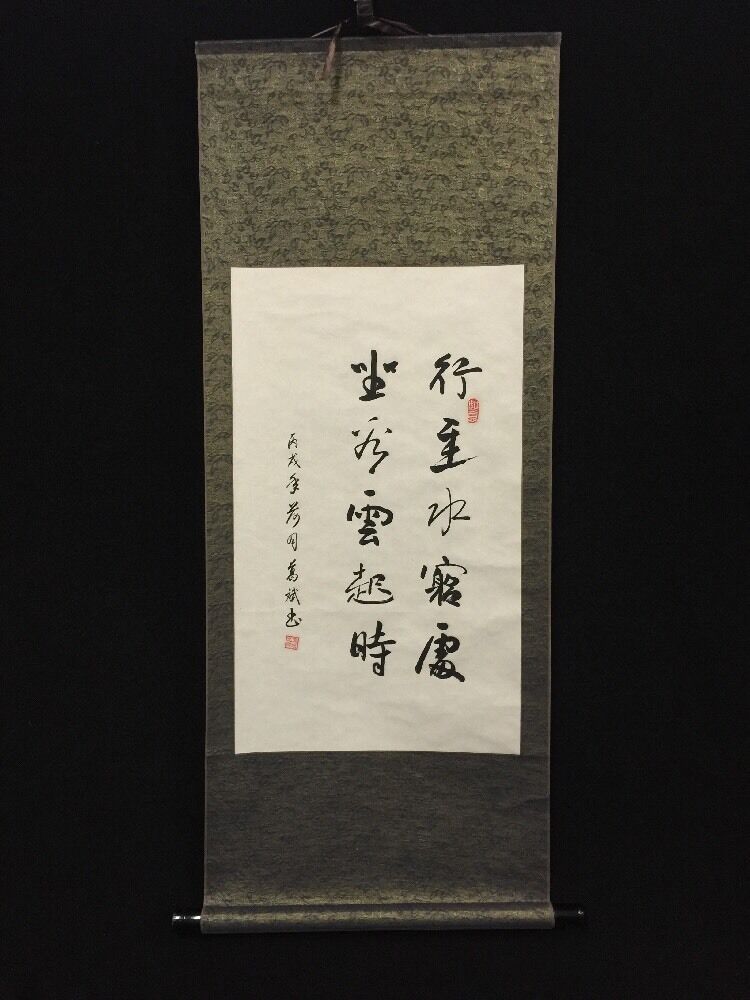 行至水窮處
坐看雲起時
丙戌年荷月斌書